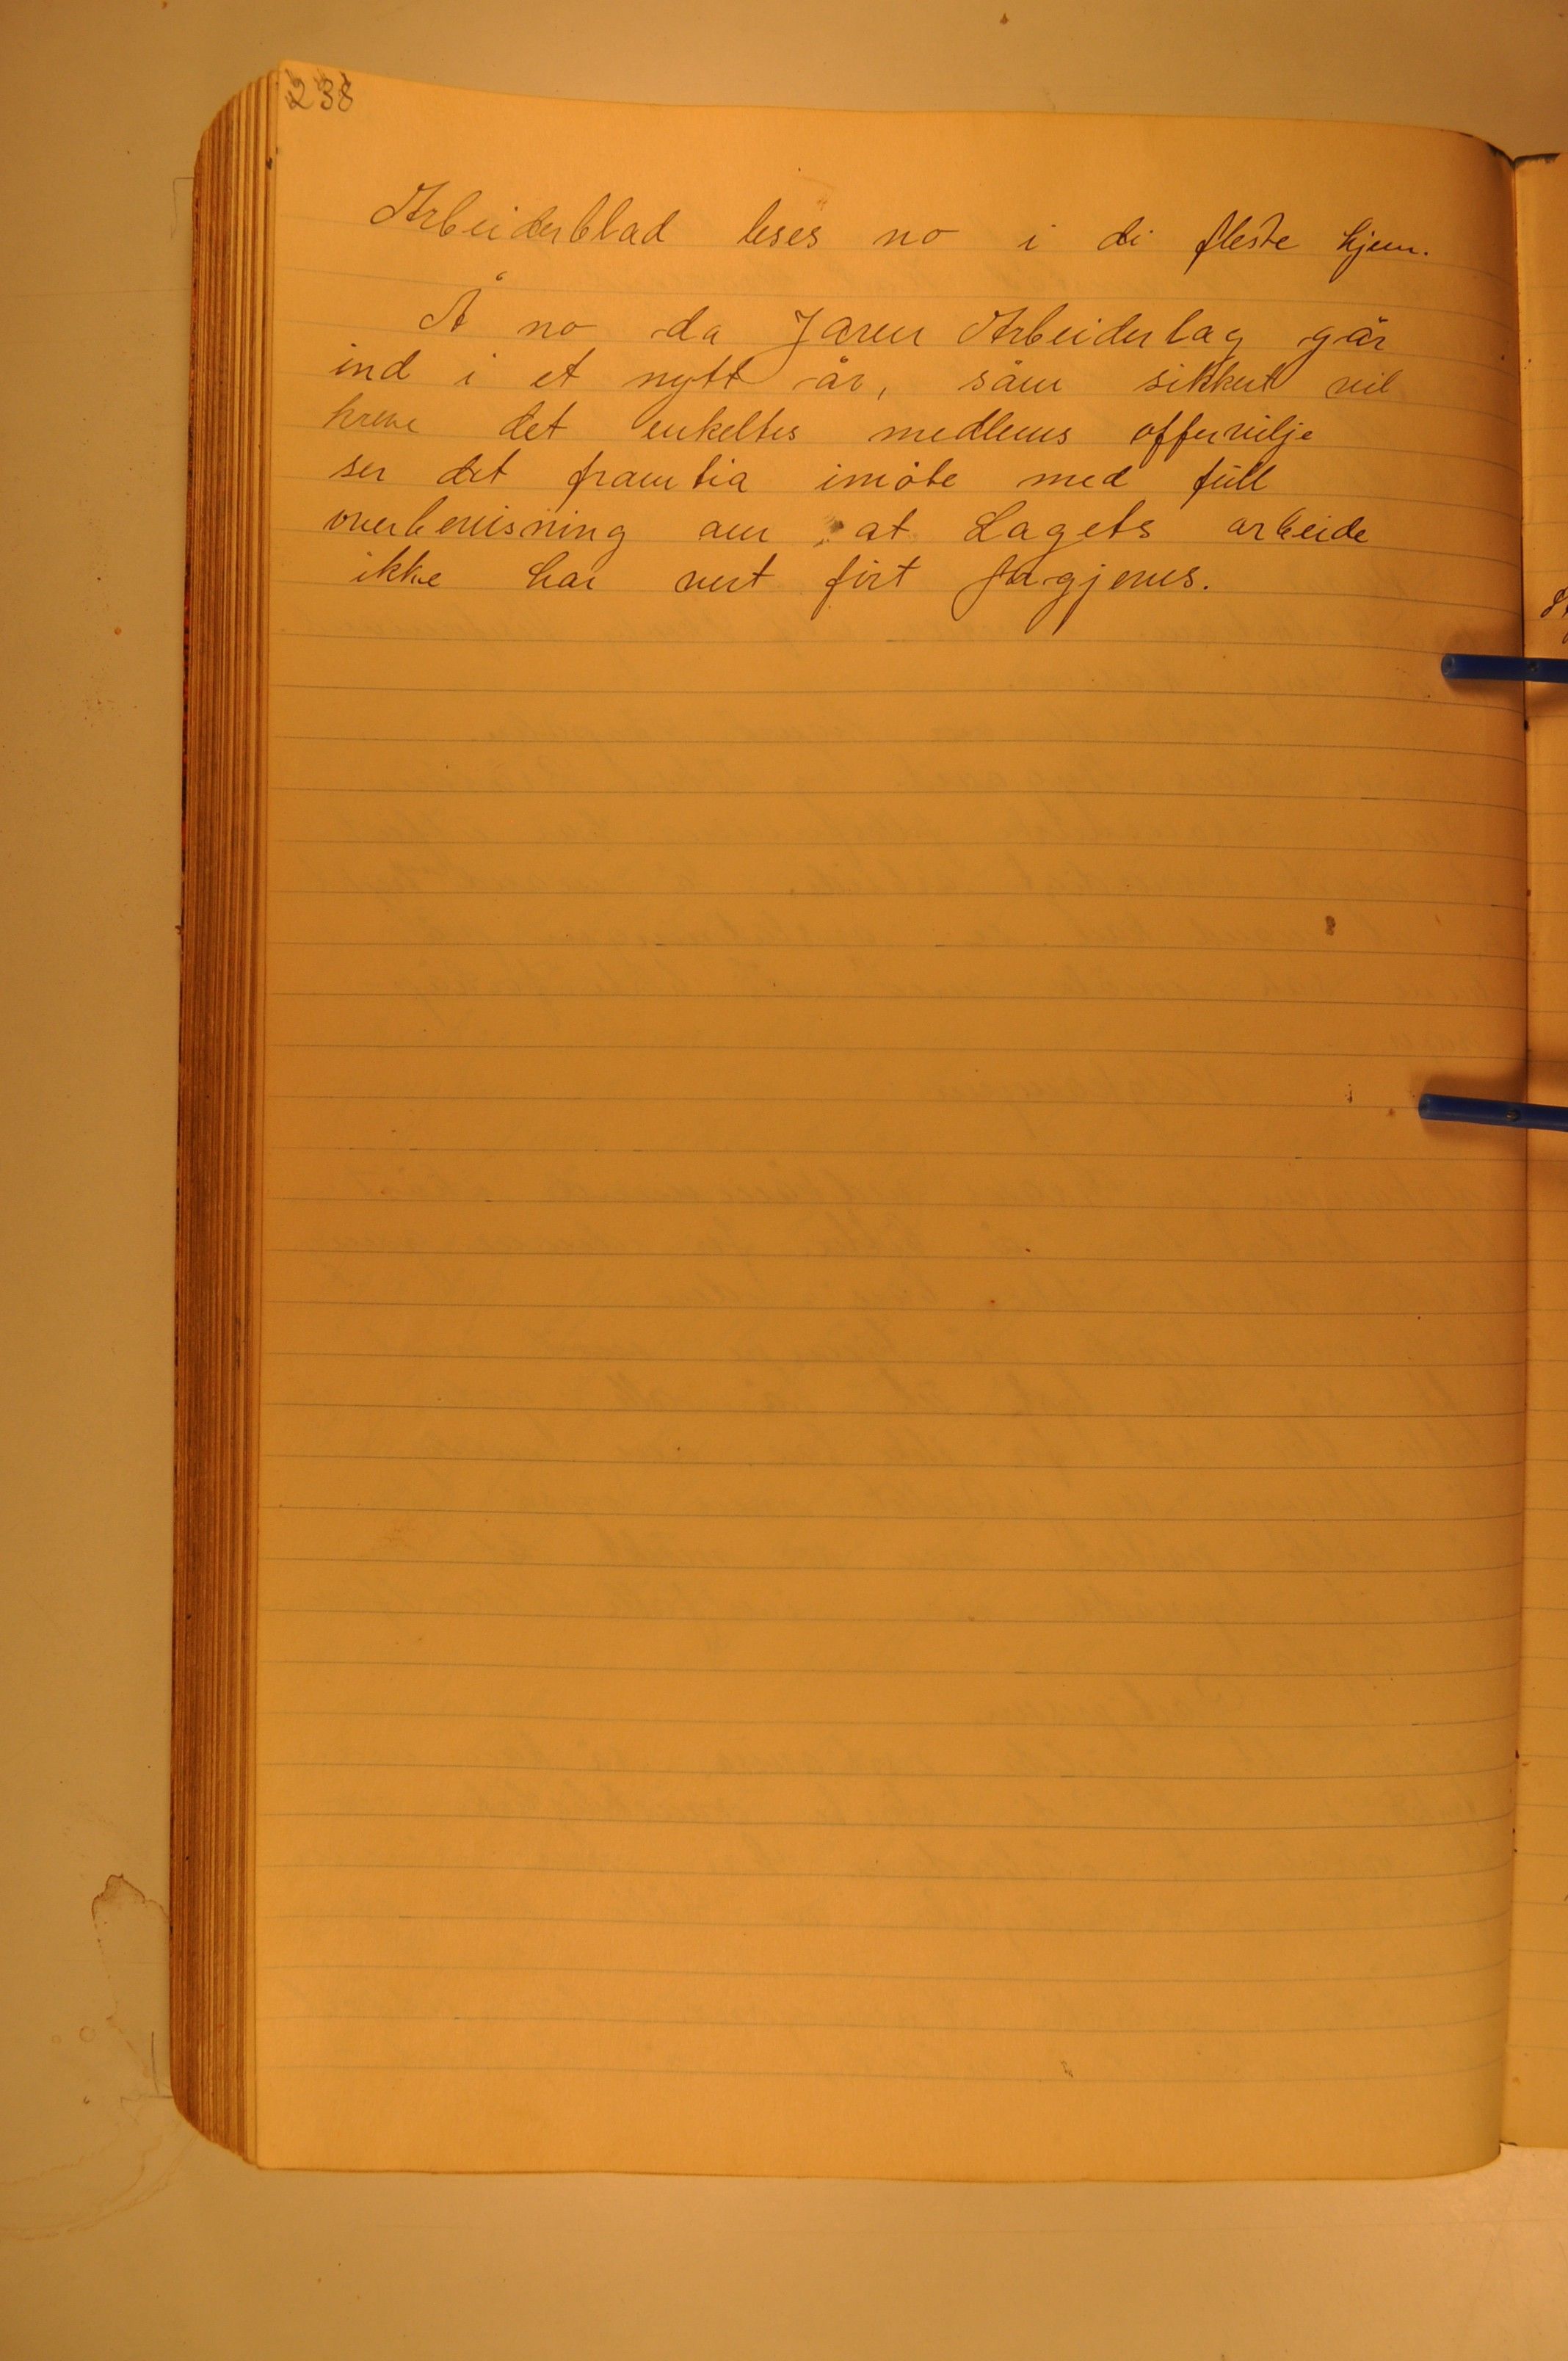 238
Arbeiderblad leses no i di fleste hjem.
Å no da Jaren Arbeiderlag går
ind i et nytt år, såm sikkert vil
kreve det enkeltes medlems offervilje
ser det framtia imøte med full
overbevisning åm at Lagets arbeide
ikke har vert ført forgjeves.